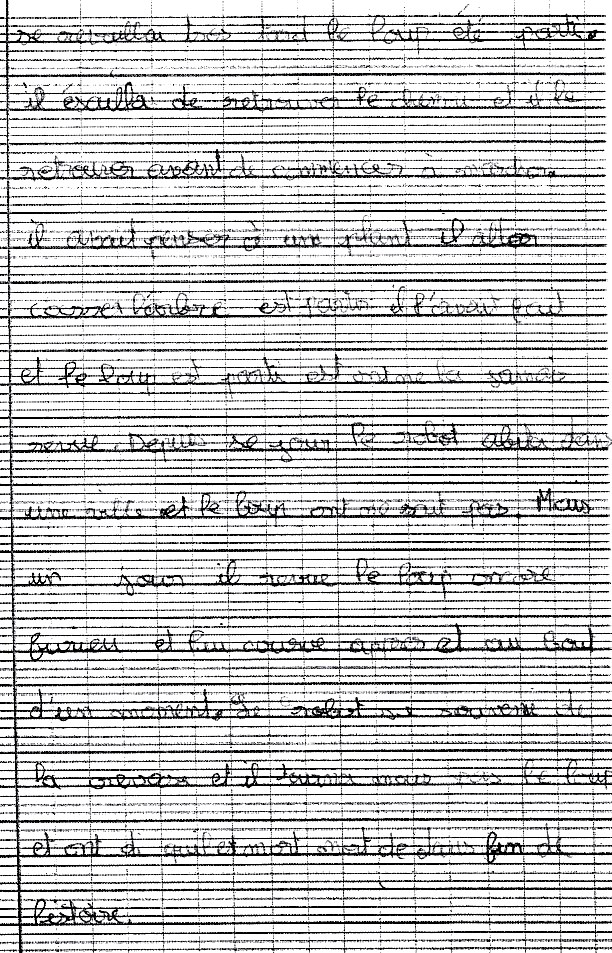 se revailla tres tard le loup été parti.
il éseilla de retrouver le chemin et il le
retrouver avant de commencer à marcher.
il avait penser à un plant il aller
casser l'arbre est partir il l'avait fait
et le loup est parti est ont ne la jamais
revue. Depuis se jour le robot abita dans
une ville et le loup ont ne sait pas. Mais
un jour il revue le loup encore
furieu et lui courue apprer et au bout
d'un moment. Le robot se souvene de
la crevase et il tourna mais pas le loup
et ont di qu'il et mort mort de dans fin de
l'estoire.